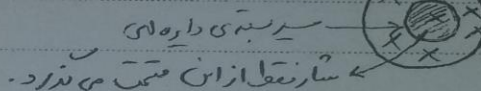 مسیر بسته‌ی دایره‌ای
شار فقط از این قسمت می‌گذرد.